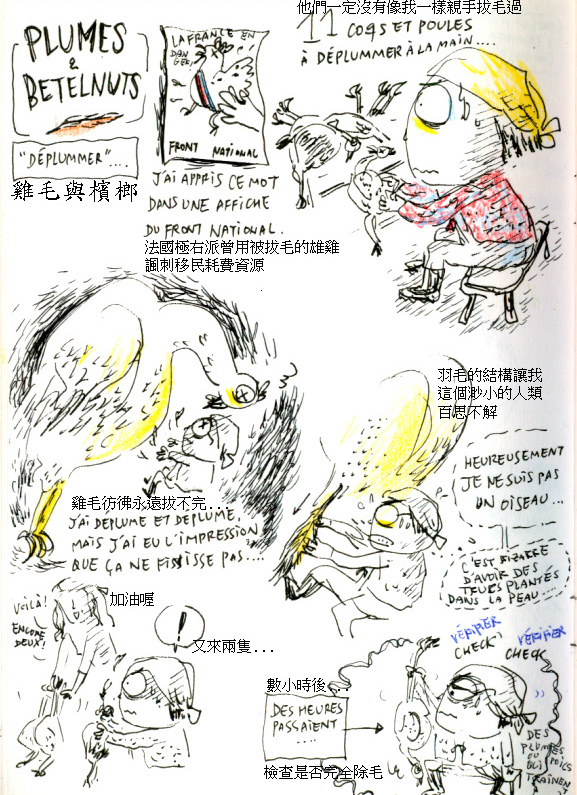 PLUMES
&
BETELNUTS
"DÉPLUMMER"....
雞毛與檳榔
LA FRANCE EN
DAN
GER!
FRONT NATIONAL
J'AI APPRIS CE MOT
DANS UNE AFFICHE
DU FRONT NATIONAL.
法國極右派曾用被拔毛的雄雞
諷刺移民耗費資源
他們一定沒有像我一樣親手拔毛過
11 COQS ET POULES
À DÉPLUMMER À LA MAIN....
雞毛彷彿永遠拔不完...
J'AI DEPLUME ET DEPLUME,
MAIS J'AI EU L'IMPRESSION
QUE ÇA NE FINISSE PAS....
羽毛的結構讓我
這個渺小的人類
百思不解
HEUREUSEMENT
JE NE SUIS PAS
UN OISEAU...
C'EST BIZARRE
D'AVOIR DES
TRUCS PLANTÉS
DANS LA PEAU....
VOILÀ!
ENCORE
DEUX!
加油喔
!
又來兩隻...
數小時後...
DES HEURES
PASSAIENT
....
檢查是否完全除毛
VÉRIFIER
CHECK
VÉRIFIER
CHECK
DES
PLUMES
OU
POILS
TRAÎNENT